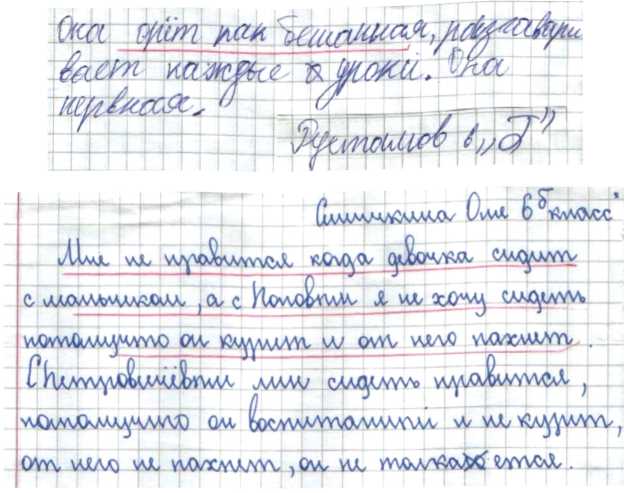 Она орёт как бешанная, разгавари
вает каждые уроки. Она
нервная.
Рустамов 6 „Б”
Синичкина Оля 6 б класс
Мне не нравится когда девочка сидит
с мальчиком, а с Поповым я не хочу сидеть
потомучто он курит и от него пахнет.
С мне сидеть нравится,
потомучто он воспитаный и не курит,
от него не пахнет, он не толкается.